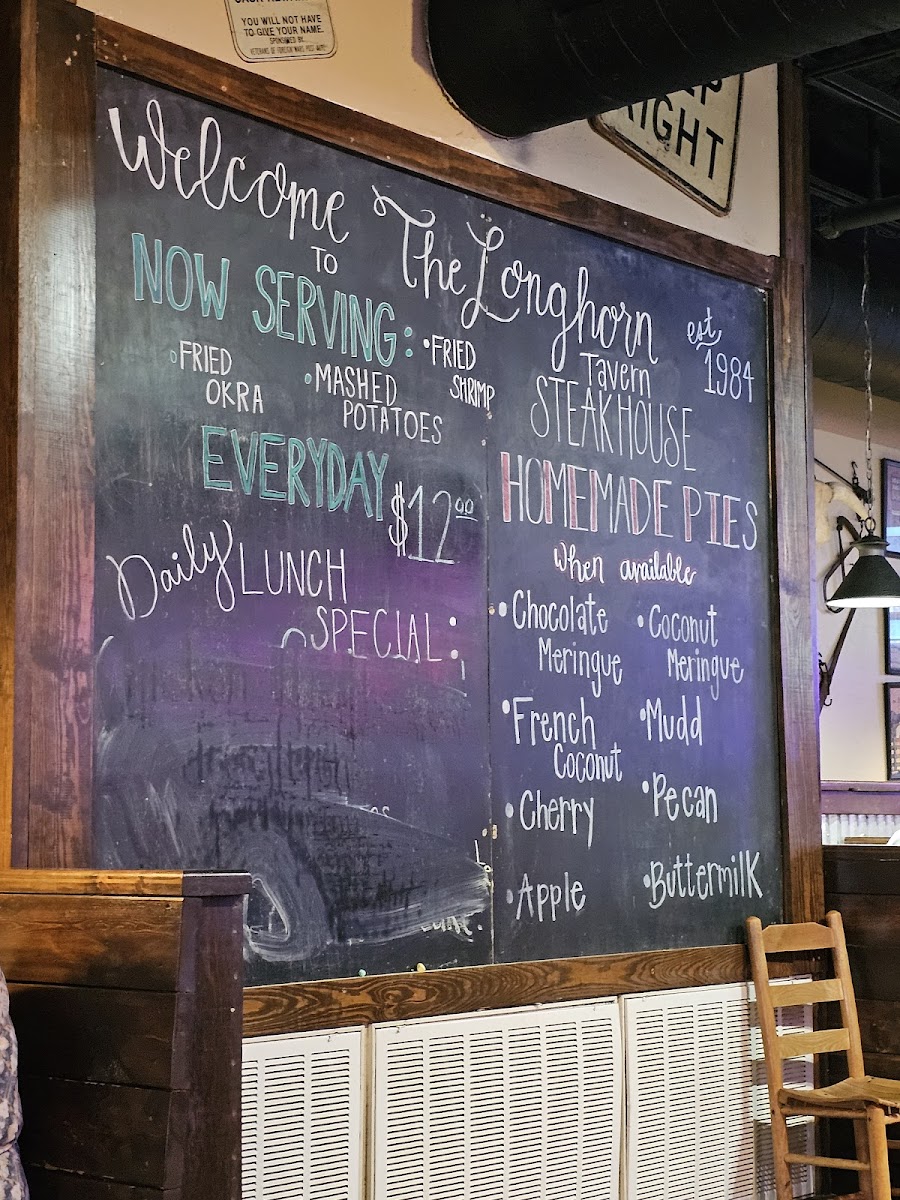 YOU WILL NOT HAVE
TO GIVE YOUR NAME.
SPONSORED BY
VETERANS OF FOREIGN WARS POST
RIGHT
Welcome
TO
The Longhorn
Tavern
STEAKHOUSE
est
1984
NOW SERVING:
•FRIED
OKRA
•MASHED
POTATOES
•FRIED
SHRIMP
EVERYDAY
$12.00
Daily LUNCH
SPECIAL:
HOMEMADE PIES
When available
•Chocolate
Meringue
•Coconut
Meringue
•French
Coconut
•Mudd
•Cherry
•Pecan
•Apple
•Buttermilk